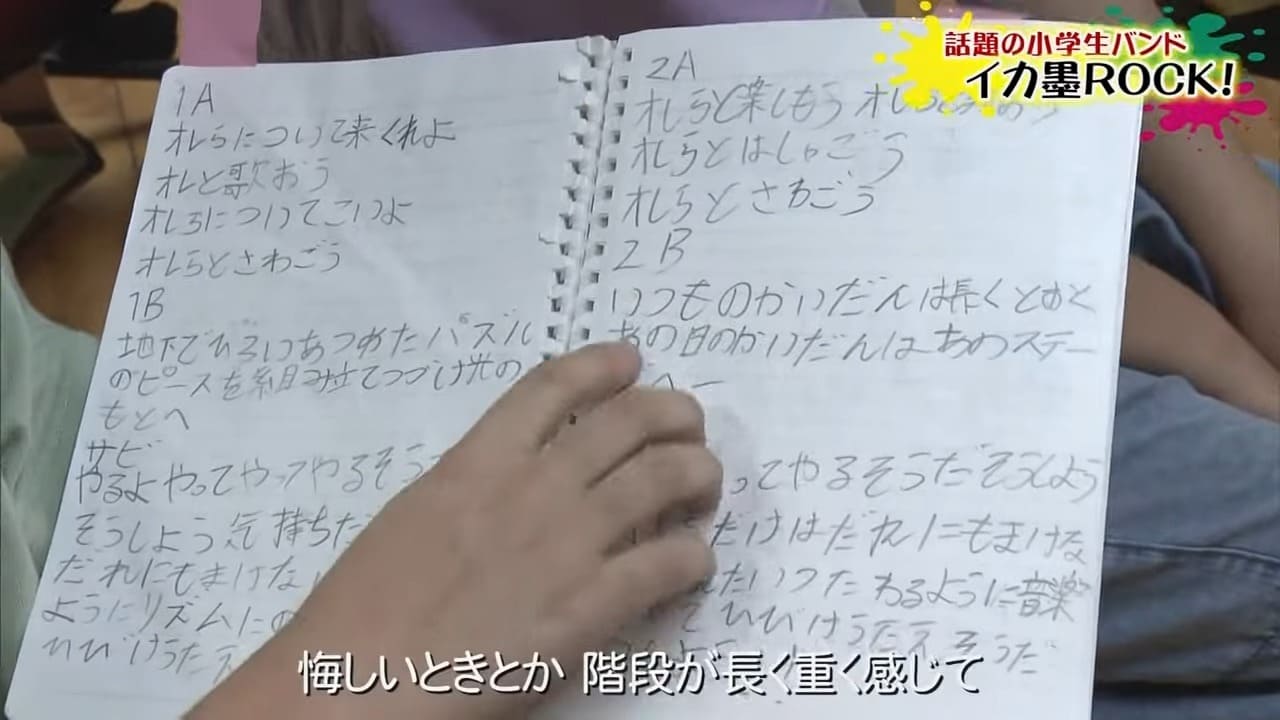 話題の小学生バンド
イカ墨ROCK!
1A
オレらについて来くれよ
オレと歌おう
オレらについてこいよ
オレらとさわごう
1B
地下でひろいあつめたパズル
のピースを組み立てつづけ光の
もとへ
サビ
やるよやってやってやるそう
そうしよう気持ちだ
だれにもまけない
ようにリズムにの
ひびけうたえ
2A
オレらと楽しもう オレらと
オレらとはしゃごう
オレらとさわごう
2B
いつものかいだんは長くとおく
あの日のかいだんはあのステー
へー
ってやるそうだそうしよう
だけはだれにもまけな
いつたわるように音楽
でひびけうたえそうだ
悔しいときとか 階段が長く重く感じて